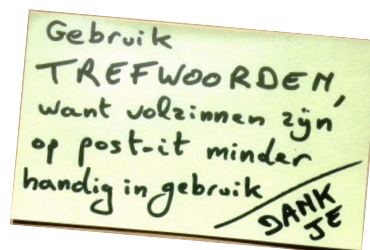 Gebruik
TREFWOORDEN,
want volzinnen zijn
op post-it minder
handig in gebruik
DANK
JE